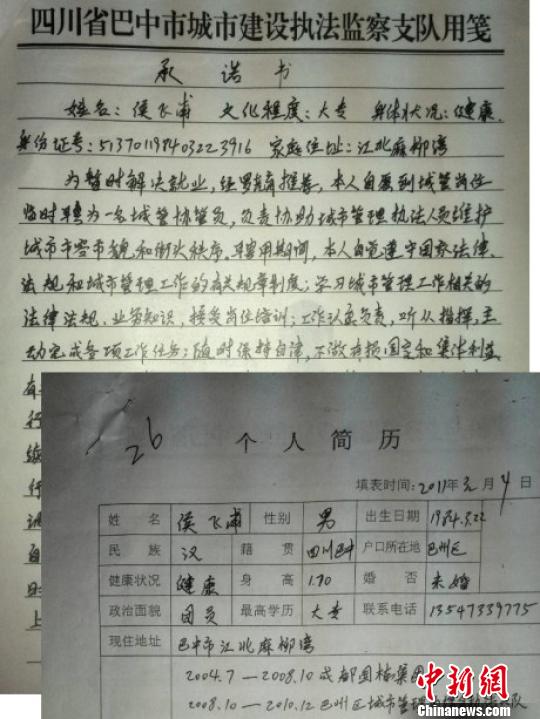 四川省巴中市城市建设执法监察支队用笺
承诺书
姓名：侯飞甫 文化程度：大专 身体状况：健康.
身份证号：513701198403223916 家庭住址：江北麻柳湾
为暂时解决就业，经推荐，本人自愿到城管岗位
临时聘为一名城管协管员，负责协助城市管理执法人员维护
城市市容市貌和街头秩序，聘用期间，本人自觉遵守国家法律、
法规和城市管理工作的有关规章制度；学习城市管理工作相关的
法律法规、业务知识，接受岗位培训；工作认真负责，听从指挥，主
动完成各项工作任务；随时保持自律，不做有损国家和集体利益
有
行
续
行
调
自
时
上
26 个人简历
填表时间：2011年元月4日
姓名 侯飞甫 性别 男 出生日期 1984.3.22
民族 汉 籍贯 四川巴中 户口所在地 巴州区
健康状况 健康 身高 1.70 婚否 未婚
政治面貌 团员 最高学历 大专 联系电话 13547339775
现住地址 巴中市江北麻柳湾
2004.7—2008.10 成都国栋集团
2008.10—2010.12 巴州区城市管理
中新网
Chinanews.com